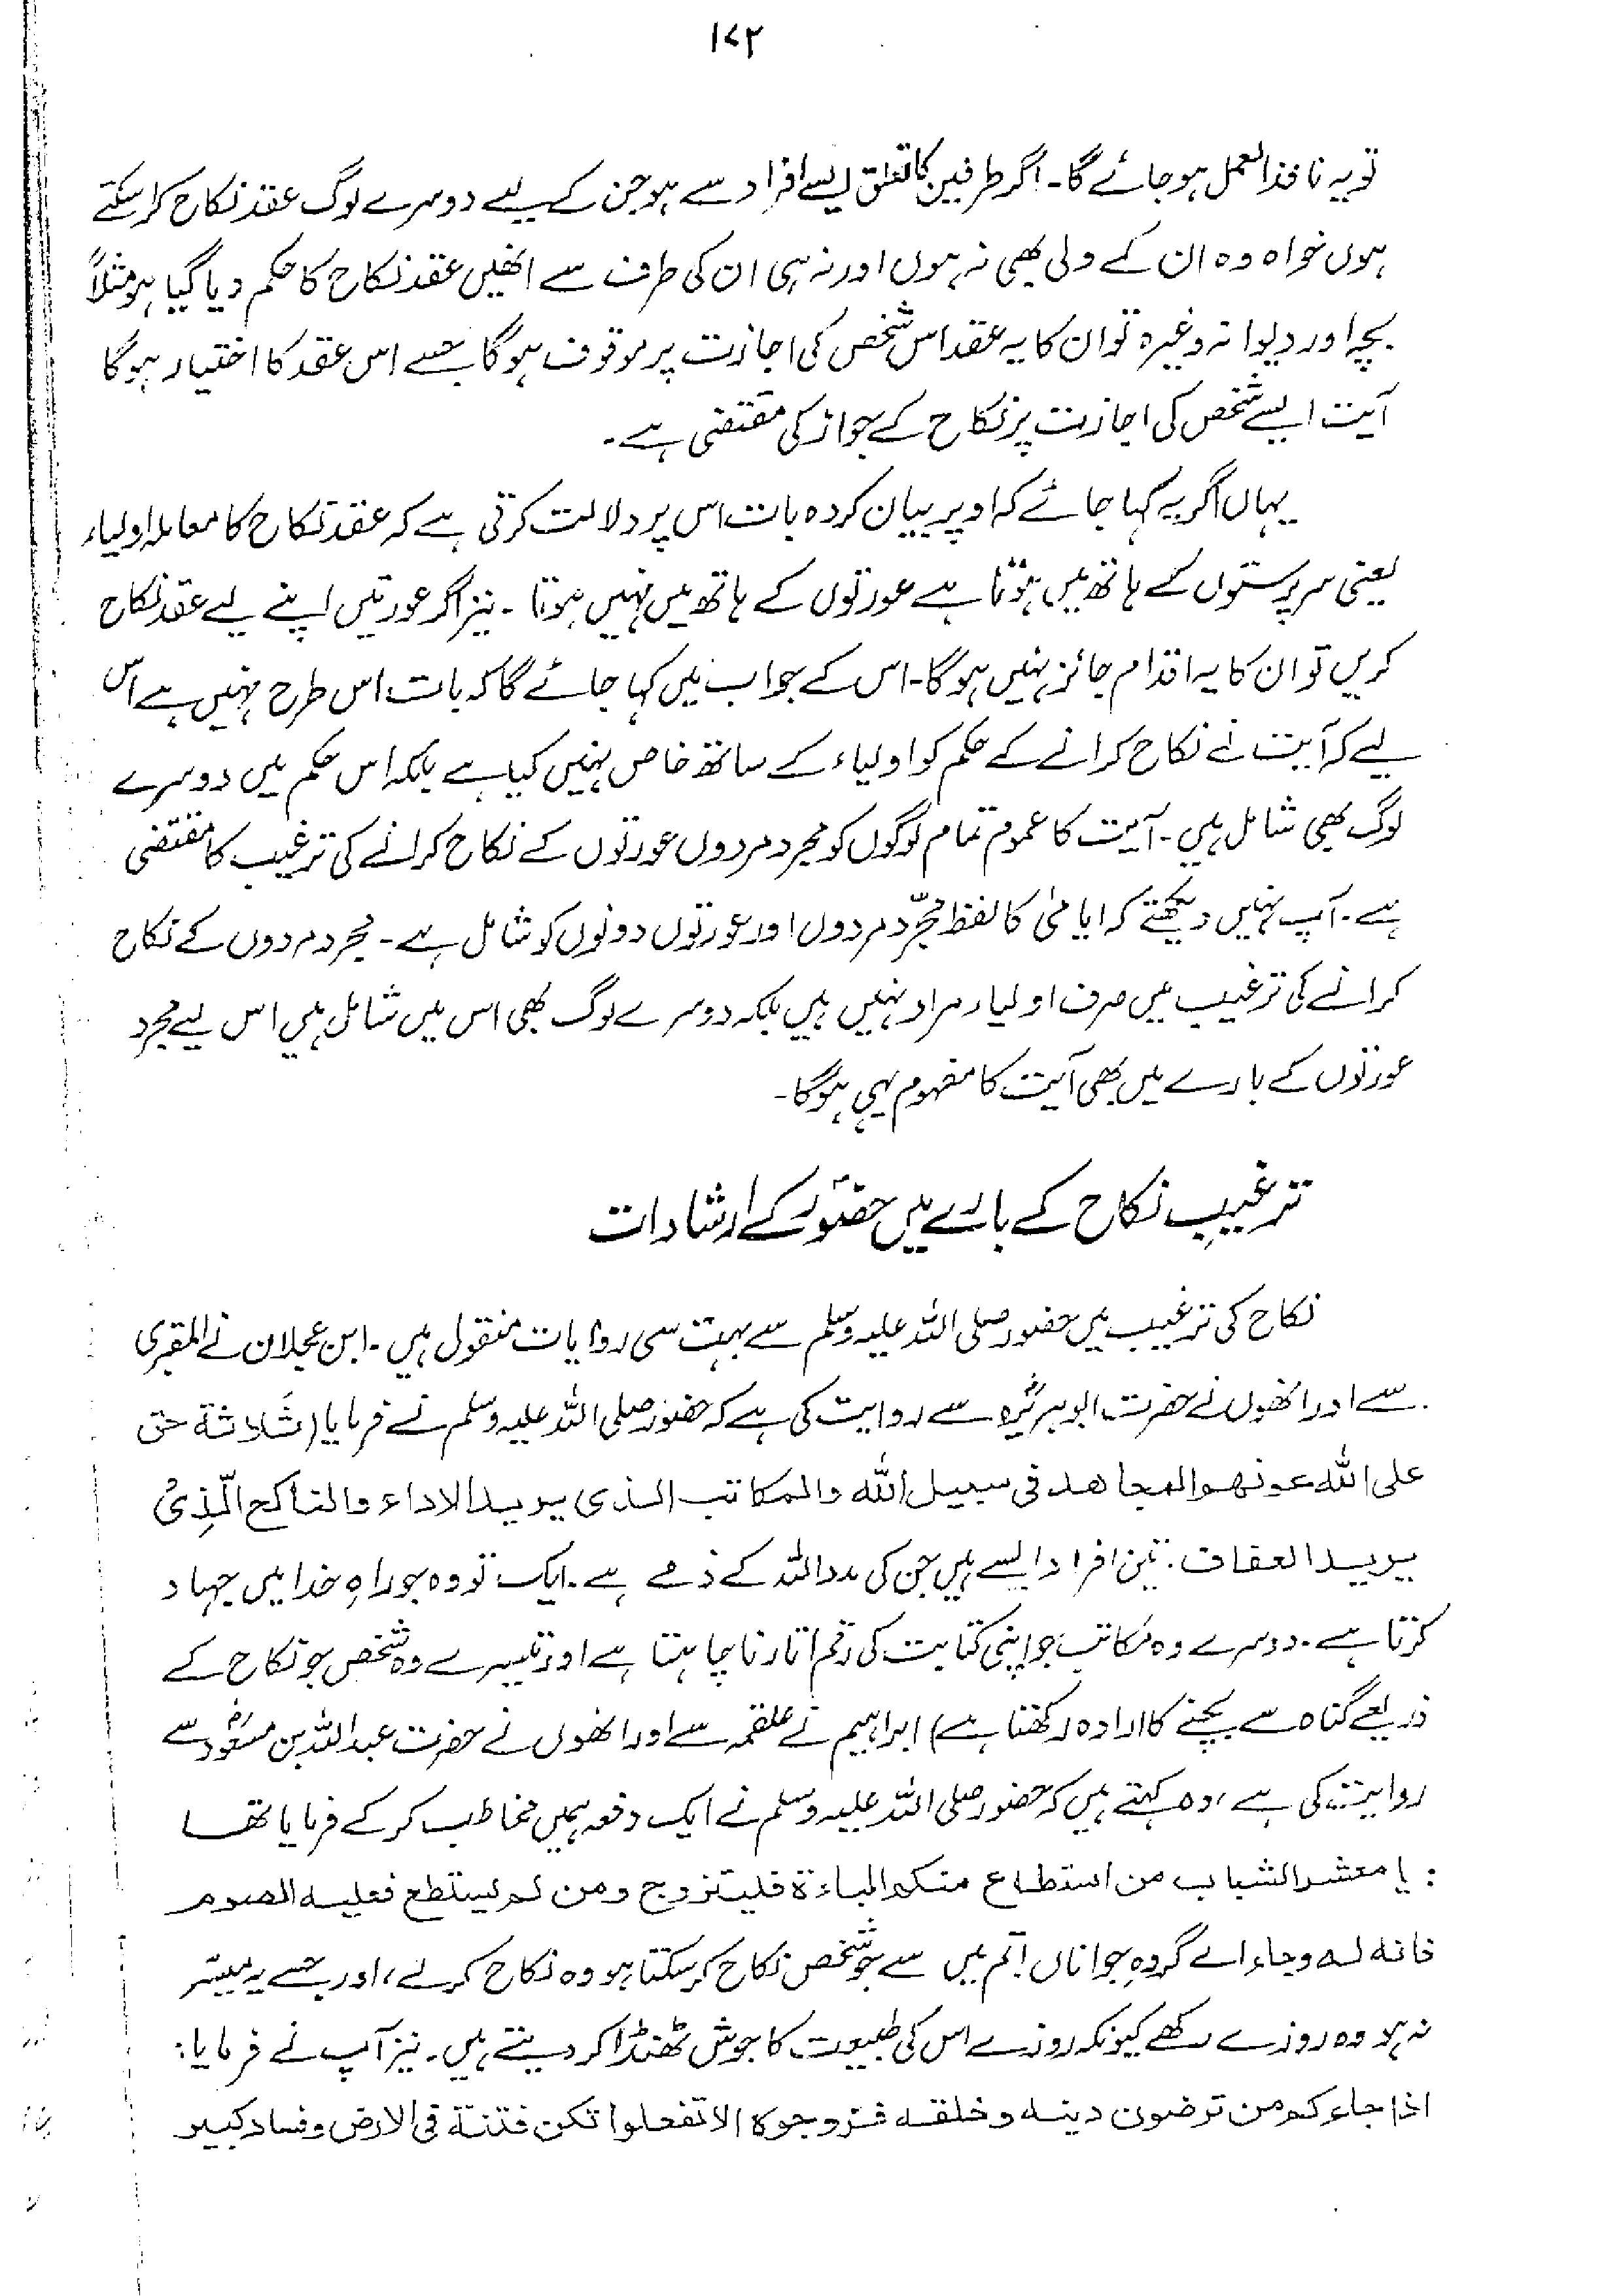 ۱۷۲
تو یہ نافذ العمل ہو جائے گا۔ اگر طرفین کا تعلق ایسے افراد سے ہو جن کے لیے دوسرے لوگ عقد نکاح کرا سکتے
ہوں خواہ وہ ان کے ولی بھی نہ ہوں اور نہ ہی ان کی طرف سے انھیں عقد نکاح کا حکم دیا گیا ہو مثلاً
بچہ اور دیوانہ وغیرہ تو ان کا یہ عقد اس شخص کی اجازت پر موقوف ہو گا جسے اس عقد کا اختیار ہو گا
آیت ایسے شخص کی اجازت پر نکاح کے جواز کی مقتضی ہے۔
یہاں اگر یہ کہا جائے کہ اوپر بیان کردہ بات اس پر دلالت کرتی ہے کہ عقد نکاح کا معاملہ اولیاء
یعنی سرپرستوں کے ہاتھ میں ہوتا ہے عورتوں کے ہاتھ میں نہیں ہوتا۔ نیز اگر عورتیں اپنے لیے عقد نکاح
کریں تو ان کا یہ اقدام جائز نہیں ہو گا۔ اس کے جواب میں کہا جائے گا کہ بات اس طرح نہیں ہے اس
لیے کہ آیت نے نکاح کرانے کے حکم کو اولیاء کے ساتھ خاص نہیں کیا ہے بلکہ اس حکم میں دوسرے
لوگ بھی شامل ہیں۔ آیت کا عموم تمام لوگوں کو مجرد مردوں عورتوں کے نکاح کرانے کی ترغیب کا مقتضی
ہے۔ آپ نہیں دیکھتے کہ ایامیٰ کا لفظ مجرّد مردوں اور عورتوں دونوں کو شامل ہے۔ مجرد مردوں کے نکاح
کرانے کی ترغیب میں صرف اولیاء مراد نہیں ہیں بلکہ دوسرے لوگ بھی اس میں شامل ہیں اس لیے مجرد
عورتوں کے بارے میں بھی آیت کا مفہوم یہی ہو گا۔
ترغیبِ نکاح کے بارے میں حضورؐ کے ارشادات
نکاح کی ترغیب میں حضور صلی اللہ علیہ وسلم سے بہت سی روایات منقول ہیں۔ ابن عجلان نے المقبری
سے اور انھوں نے حضرت ابوہریرہؓ سے روایت کی ہے کہ حضور صلی اللہ علیہ وسلم نے فرمایا (ثَلاثة حق
علی اللہ عونهم المجاهد فی سبیل اللہ والمکاتب الذی یرید الاداء والناکح الّذِیْ
یرید العفاف: تین افراد ایسے ہیں جن کی مدد اللہ کے ذمے ہے۔ ایک تو وہ جو راہِ خدا میں جہاد
کرتا ہے۔ دوسرے وہ مکاتب جو اپنی کتابت کی رقم اتارنا چاہتا ہے اور تیسرے وہ شخص جو نکاح کے
ذریعے گناہ سے بچنے کا ارادہ رکھتا ہے) ابراہیم نے علقمہ سے اور انھوں نے حضرت عبداللہ بن مسعودؓ سے
روایت کی ہے، وہ کہتے ہیں کہ حضور صلی اللہ علیہ وسلم نے ایک دفعہ ہمیں مخاطب کر کے فرمایا تھا
: یا معشر الشباب من استطاع منکم الباءة فلیتزوج ومن لم یستطع فعلیه الصوم
فانه له وجاء اے گروہِ جواناں! تم میں سے جو شخص نکاح کر سکتا ہو وہ نکاح کر لے، اور جسے یہ میسّر
نہ ہو وہ روزے رکھے کیونکہ روزے اس کی طبیعت کا جوش ٹھنڈا کر دیتے ہیں۔ نیز آپ نے فرمایا:
اذا جاءکم من ترضون دینه وخلقه فزوجوه الا تفعلوا تکن فتنة فی الارض وفساد کبیر